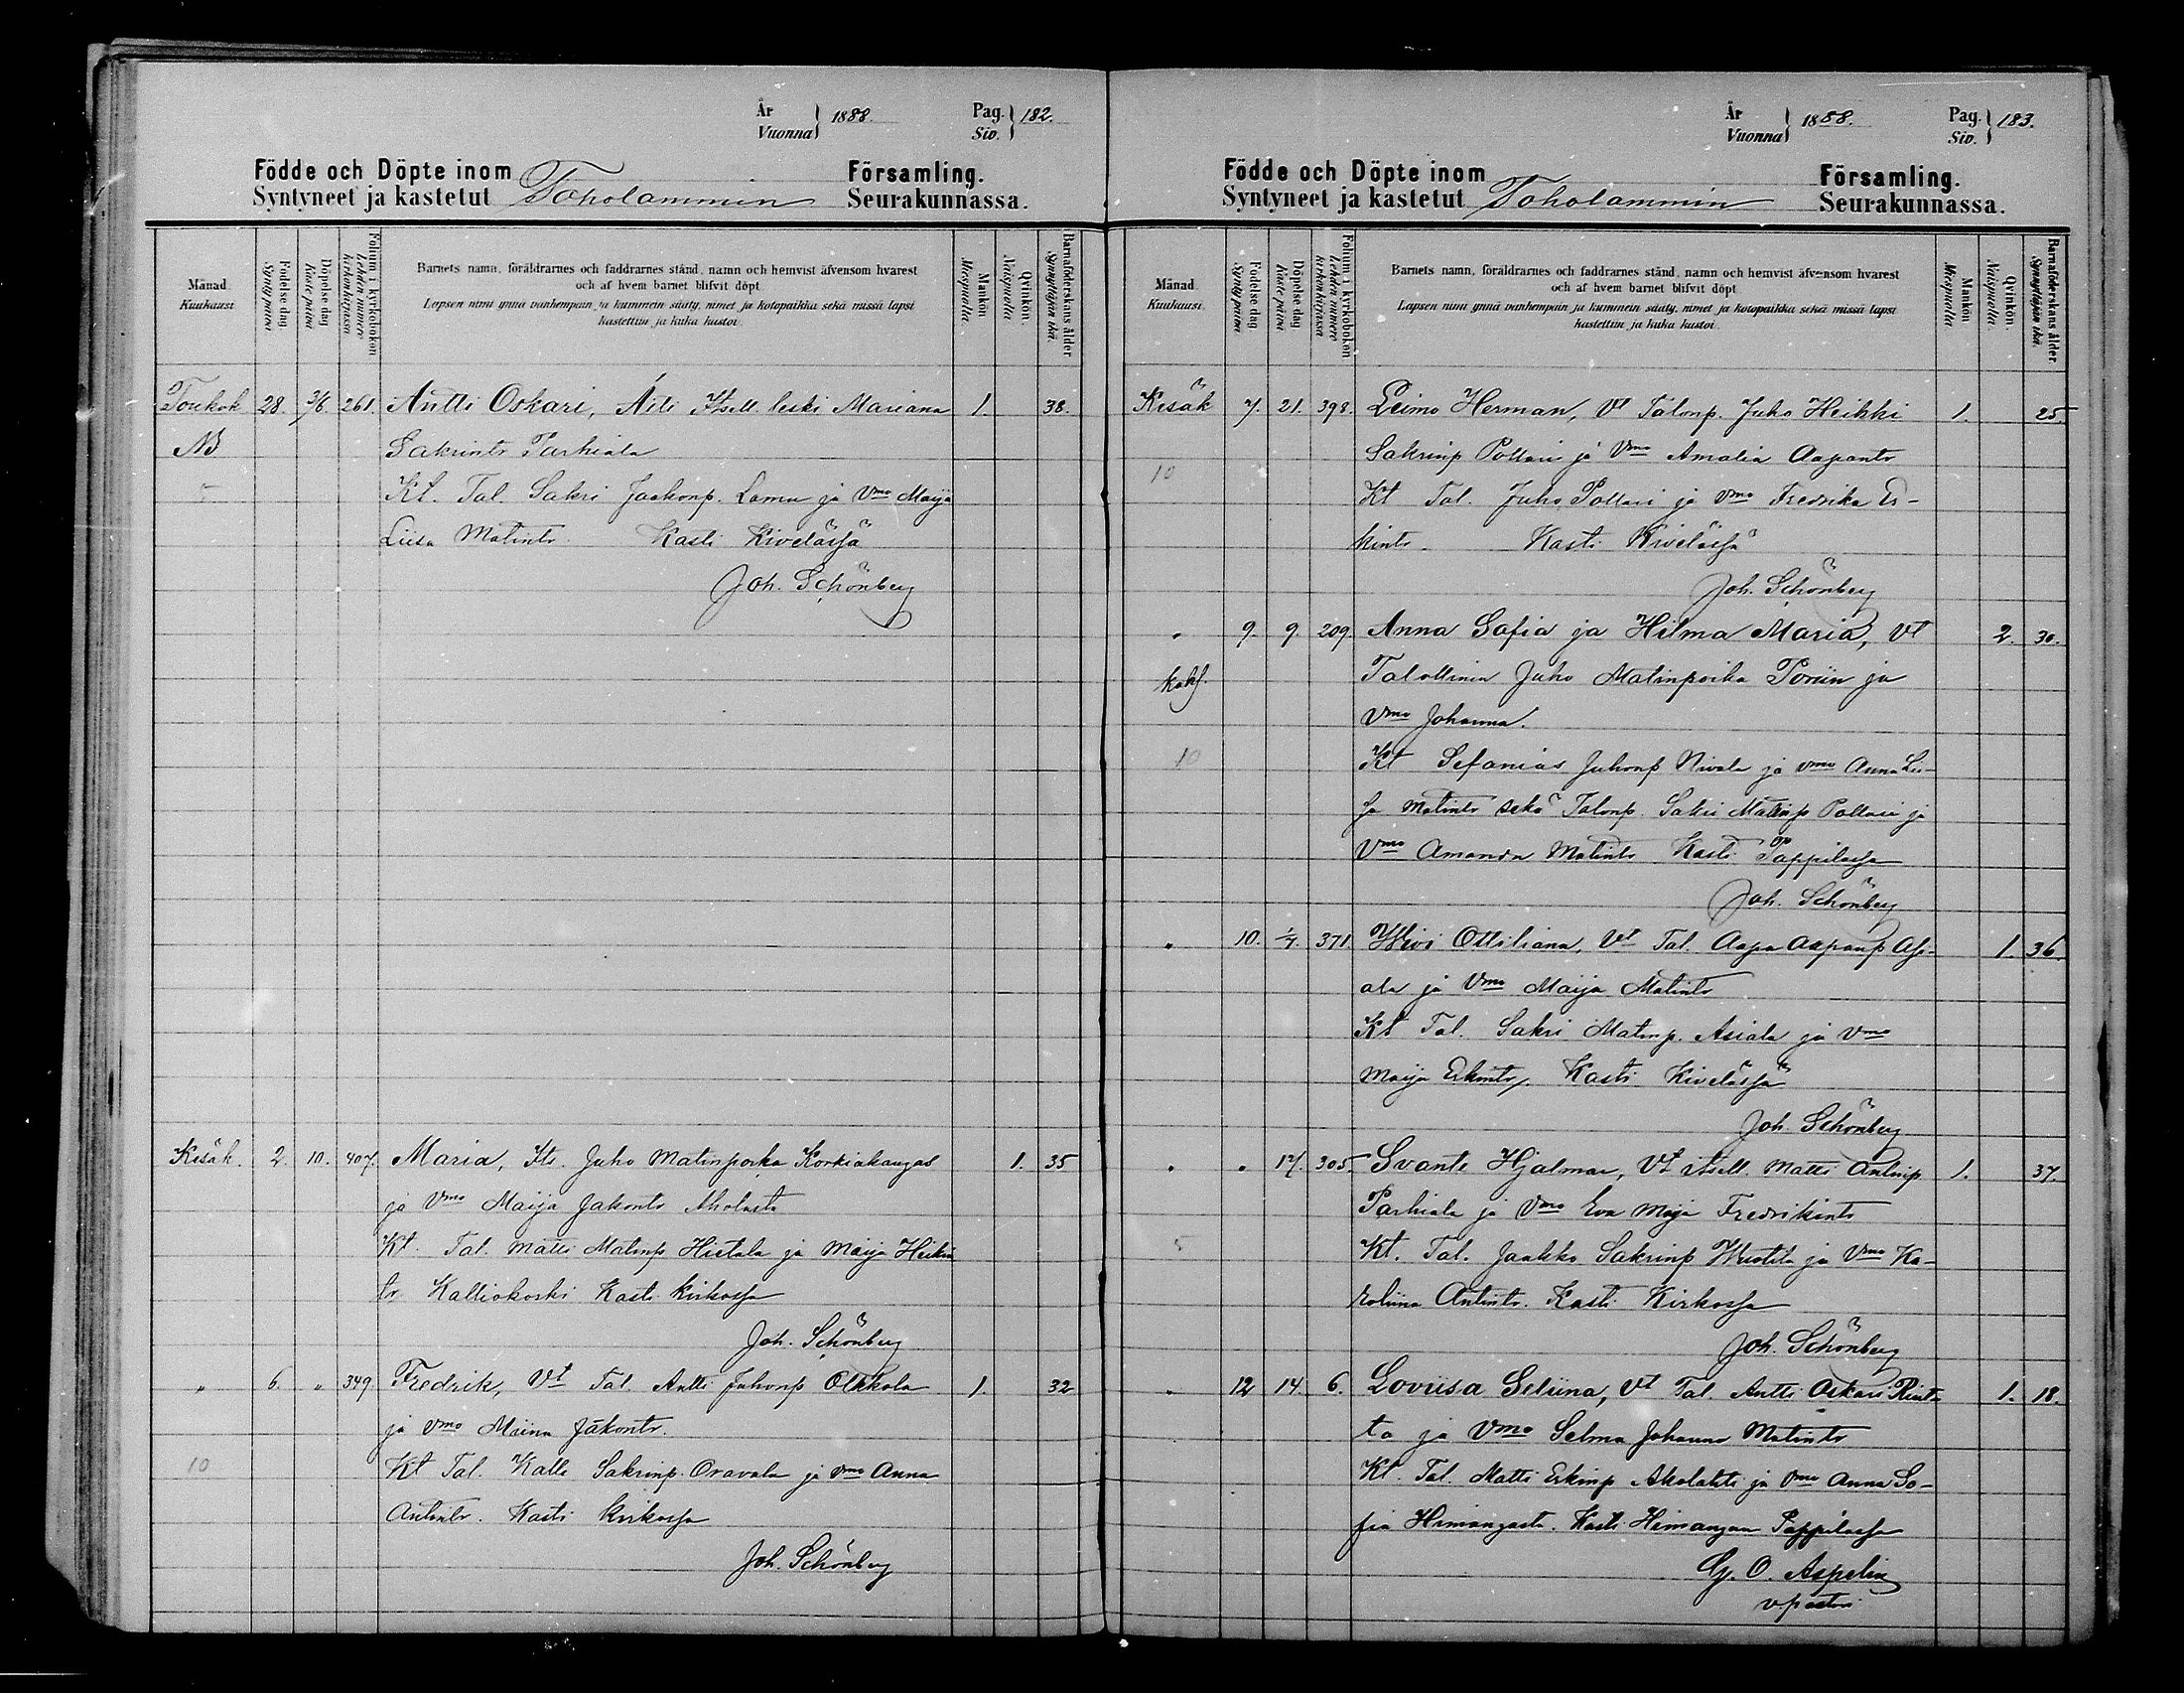 År
Vuonna } 1888. Pag.
Siv. } 182.
Födde och Döpte inom Församling.
Syntyneet ja kastetut Toholammin Seurakunnassa.
Månad
Kuukausi.
Födelse dag
Synty päivä
Döpelse dag
Kaste päivä
Folium i kyrkoboken
Lehden numero
kirkonkirjassa
Barnets namn, föräldrarnes och faddrarnes stånd, namn och hemvist äfvensom hvarest
och af hvem barnet blifvit döpt
Lapsen nimi ynnä vanhempain ja kummein sääty, nimet ja kotopaikka sekä missä lapsi
kastettiin ja kuka kastoi.
Mankön
Miespuolia
Qvinkön.
Naispuolia
Barnaföderskans ålder
Synnyttäjän ikä.
Toukok 28. 3/6 261. Antti Oskari, Äiti Itsell. leski Mariana 1. 38.
NB Sakrintr Parhiala
5 Kt. Tal. Sakri Jaakonp. Lamu ja Vmo Maija
Liisa Matintr. Kasti Kivelässä
Joh. Schönberg
Kesäk. 2. 10. 407. Maria, Its. Juho Matinpoika Korkiakangas 1. 35
ja Vmo Maija Jakontr Aholasta
Kt. Tal. Matti Matinp Hietala ja Maija Heikin
tr Kalliokoski Kasti kirkossa
Joh. Schönberg
" 6. " 349. Fredrik, Vt Tal. Antti Juhonp Olkkola 1. 32
ja Vmo Maina Jakontr.
10 Kt Tal. Kalle Sakrinp. Oravala ja Vmo Anna
Antintr. Kasti kirkossa
Joh. Schönberg
År
Vuonna } 1888. Pag.
Siv. } 183.
Födde och Döpte inom Församling.
Syntyneet ja kastetut Toholammin Seurakunnassa.
Månad
Kuukausi.
Födelse dag
Synty päivä
Döpelse dag
Kaste päivä
Folium i kyrkoboken
Lehden numero
kirkonkirjassa
Barnets namn, föräldrarnes och faddrarnes stånd, namn och hemvist äfvensom hvarest
och af hvem barnet blifvit döpt
Lapsen nimi ynnä vanhempain ja kummein sääty, nimet ja kotopaikka sekä missä lapsi
kastettiin ja kuka kastoi.
Mankön
Miespuolia
Qvinkön.
Naispuolia
Barnaföderskans ålder
Synnyttäjän ikä.
Kesäk 7. 21. 398. Leimo Herman, Vt Talonp. Juho Heikki 1. 25.
Sakrinp Pollari ja Vmo Amalia Aapontr
10 Kt Tal. Juho Pollari ja Vmo Fredrika Er-
kintr. Kasti Kivelässä
Joh. Schönberg
" 9. 9. 209. Anna Sofia ja Hilma Maria, Vt 2. 30.
Talollinen Juho Matinpoika Poriin ja
Vmo Johanna.
10 Kt Sefanias Juhonp Nivala ja vmo Anna Lii-
sa Matintr sekä Talonp. Sakri Matinp Pollari ja
Vmo Amanda Matintr Kasti Pappilassa
Joh. Schönberg
" 10. 1/7. 371. Hivi Ottiliana, Vt Tal. Aapa Aapanp Asi- 1. 36.
ala ja Vmo Maija Matintr
Kt Tal. Sakri Matinp. Asiala ja Vmo
Maija Erkintr, Kasti Kivelässä
Joh. Schönberg
" " 17. 305. Svante Hjalmar, Vt itsell. Matti Antinp 1. 37.
Parhiala ja Vmo Eva Maja Fredrikintr
5 Kt. Tal. Jaakko Sakrinp Wuotila ja Vmo Ka-
roliina Antintr. Kasti Kirkossa
Joh. Schönberg
" 12 14. 6. Loviisa Seliina, Vt Tal. Antti Oskari Rint- 1. 18.
ta ja Vmo Selma Johanna Matintr
Kt. Tal. Matti Erkinp Aholahti ja Vmo Anna So-
fia Himangasta. Kasti Himangan Pappilassa
G. O. Aspelin
v. pastori